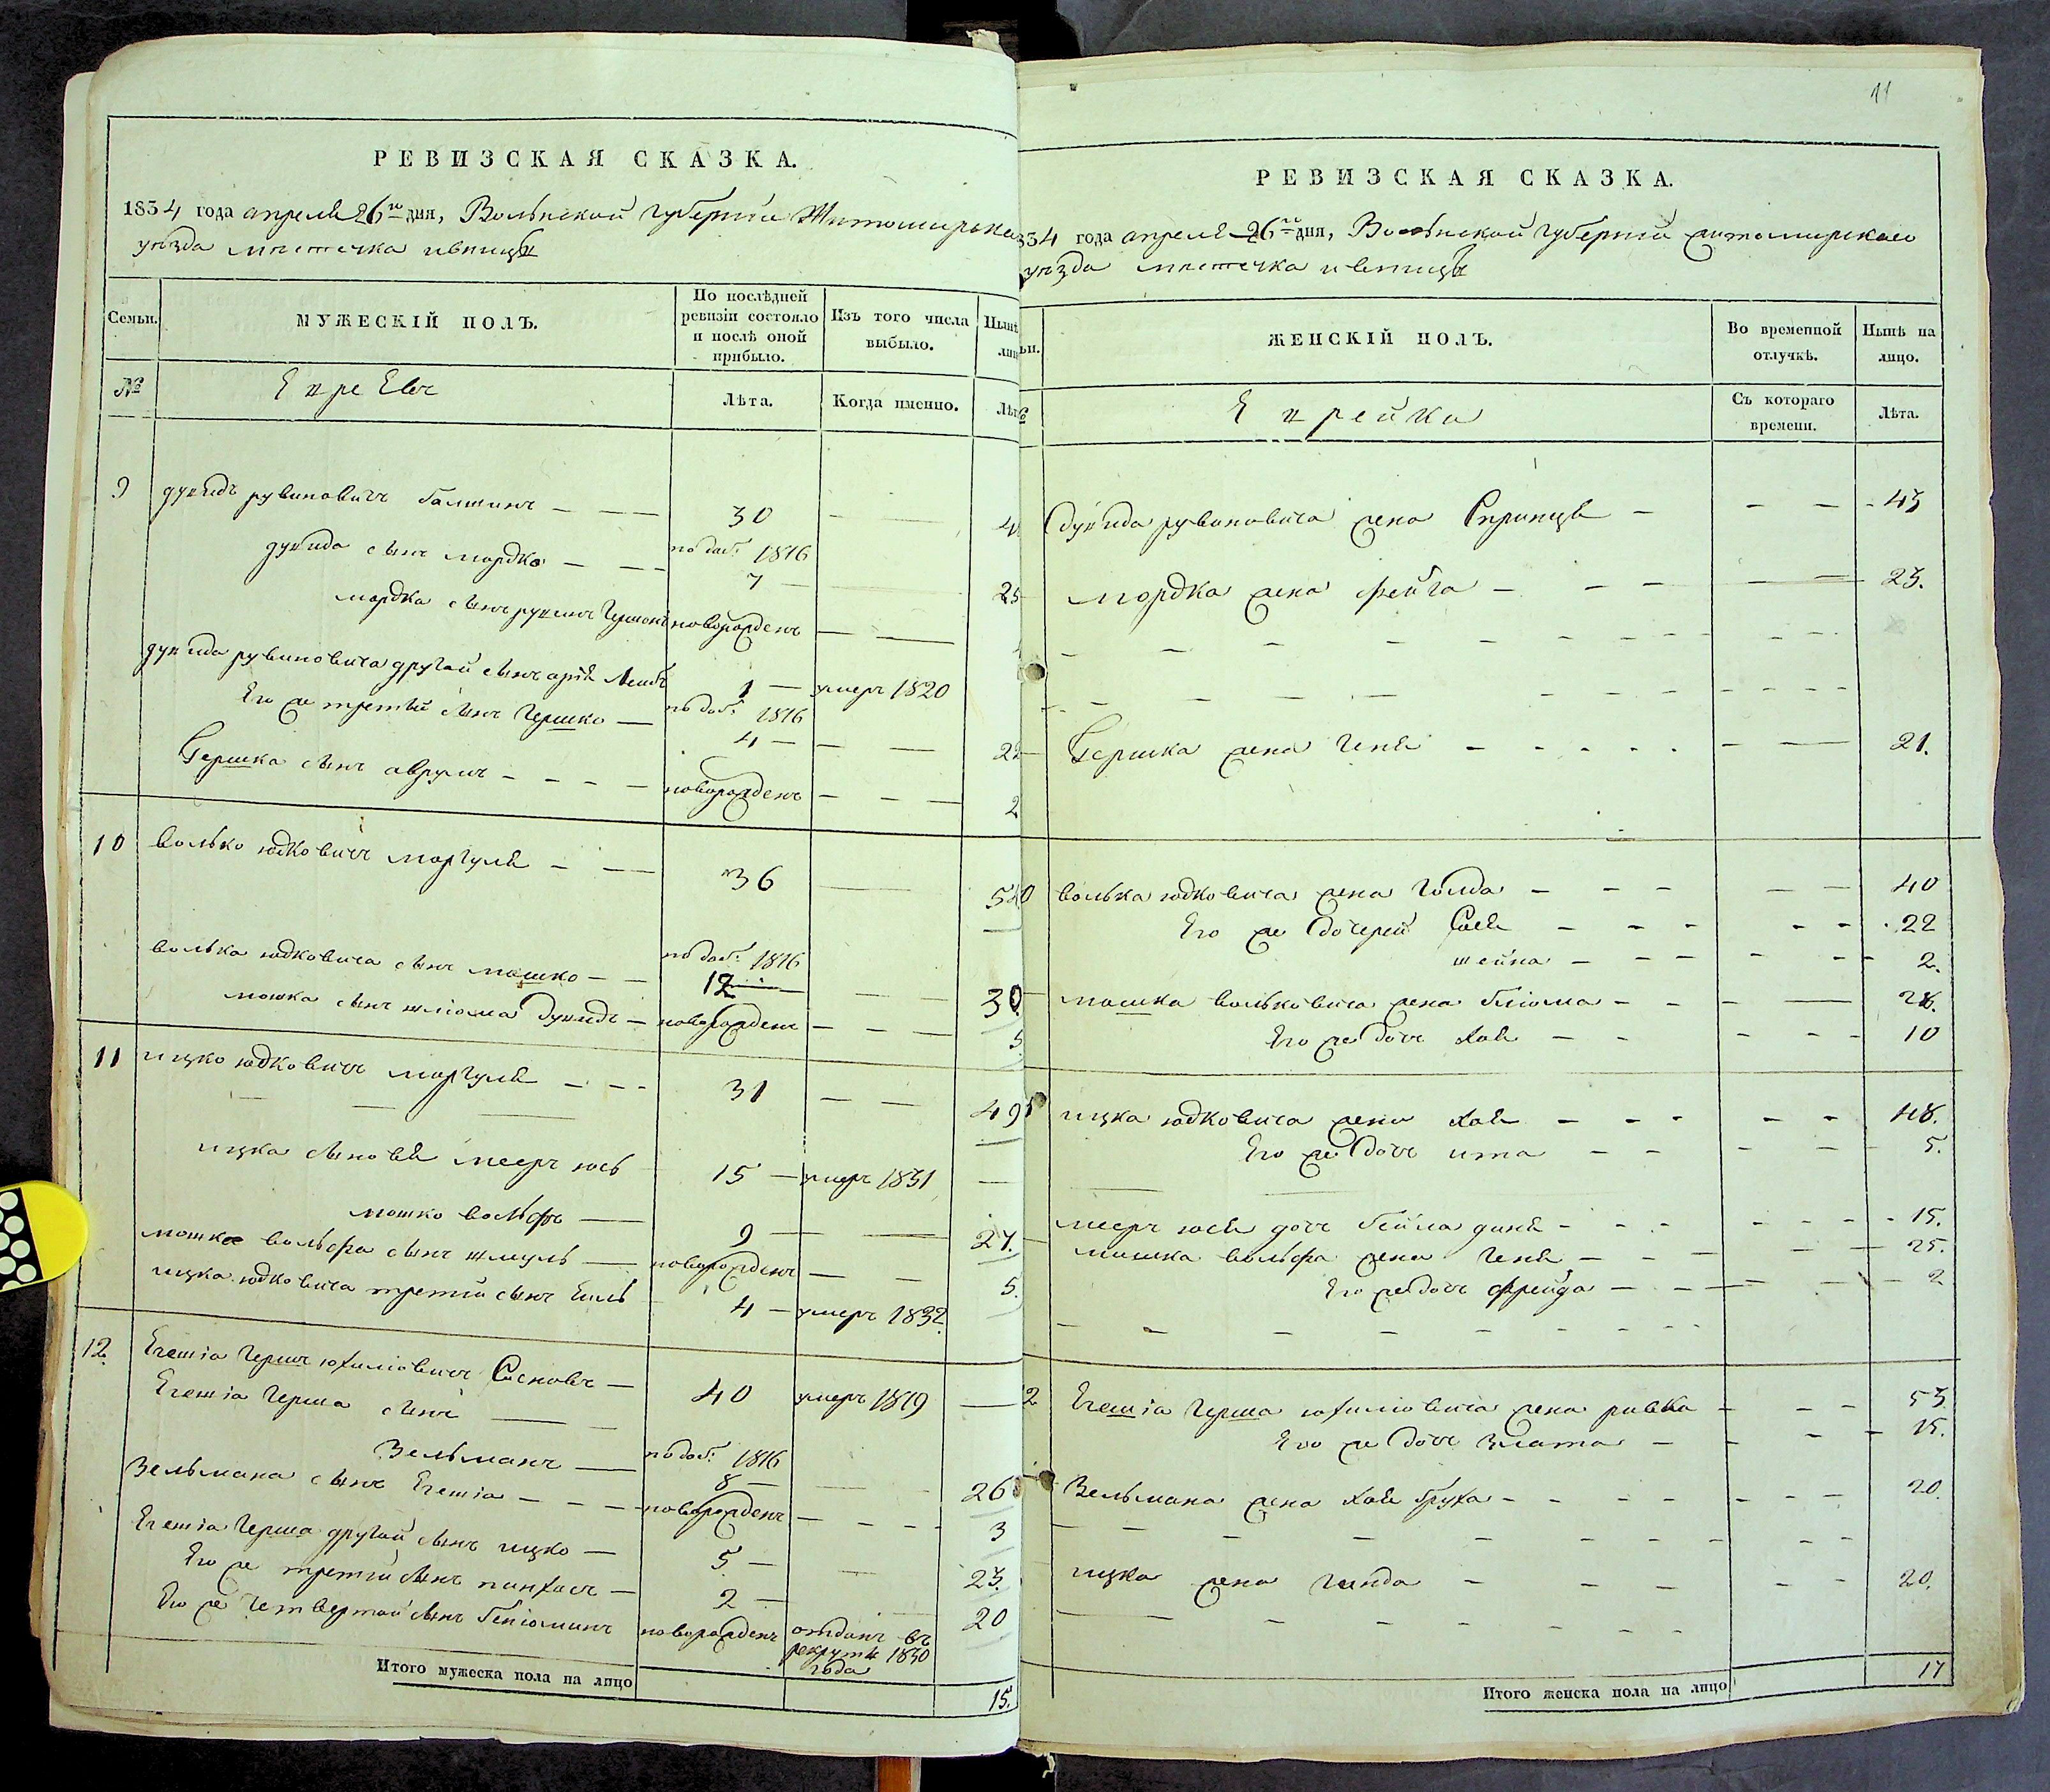 РЕВИЗСКАЯ СКАЗКА.
1834 года апреля 26го дня, Волынской губернии Житомирска
уезда местечка ивницы
Семьи.
МУЖЕСКІЙ ПОЛЪ.
По послѣдней ревизіи состояло и послѣ оной прибыло.
Изъ того числа выбыло.
Нынѣ
№
Евреевъ
Лѣта.
Когда именно.
Лѣт
9 рувиновичъ — — 30 — 4
сынъ мордко — — по доб. 1816 7 — 25
мордка сынъ новорожденъ — —
рувиновича другой сынъ арія Леибъ 1 — умеръ 1820
Его же третій сынъ Гершко — по доб. 1816 4 — — — 22
Гершка сынъ аврумъ — — — — новорожденъ — — — 2
10 волько юдковичъ маргуля — — 36 — 54
волька юдковича сынъ мошко — — по доб. 1816 12 — — — 30
мошка сынъ шлиома — новорожденъ — — — 5
11 ицко юдковичъ маргуля — — — 31 — — 49
ицка сыновья мееръ юсь 15 — умеръ 1831 —
мошко вольфъ — 9 — — 27.
мошка вольфа сынъ шмуль — новорожденъ — — 5.
ицка юдковича третій сынъ 4 — умеръ 1832.
12. Гершъ — 40 умеръ 1819 —
Герша сынъ — —
Зельманъ — по доб. 1816 8 — — 26
Зельмана сынъ — — — новорожденъ — — — — 3
Герша другой сынъ ицко — 5 — — 23.
Его же третій сынъ пинхасъ — 2 — — 20
Его же четвертой сынъ бениоминъ новорожденъ отданъ въ
рекруты 1830
года
Итого мужеска пола на лицо 15.
11
РЕВИЗСКАЯ СКАЗКА.
834 года апреля 26го дня, Волынской губерніи житомирскаго
уезда местечка ивницы
ЖЕНСКІЙ ПОЛЪ.
Во временной отлучкѣ.
Нынѣ на лицо.
Еврейки
Съ котораго времени.
Лѣта.
рувиновича жена — — — 43
мордка жена фейга — — — — 23.
Гершка жена Геня — — — — — — — 21.
волька юдковича жена Голда — — — — — 40
Его же дочерей — — — — — 22
шейна — — — — — 2.
мошка вольковича жена блюма — — — — 28.
Его же дочь хая — — — — — 10
ицка юдковича жена хая — — — — — 48.
Его же дочь ита — — — — 5.
мееръ юся дочь бейла — — — — — — 15.
мошка вольфа жена Геня — — — — — 25.
Его же дочь фрейда — — — — — 2
2 Герша жена ривка — — — 53
Его же дочь злата — — — — 15.
Зельмана жена хая — — — — — — — 20.
ицка жена гинда — — — — — 20.
Итого женска пола на лицо 17